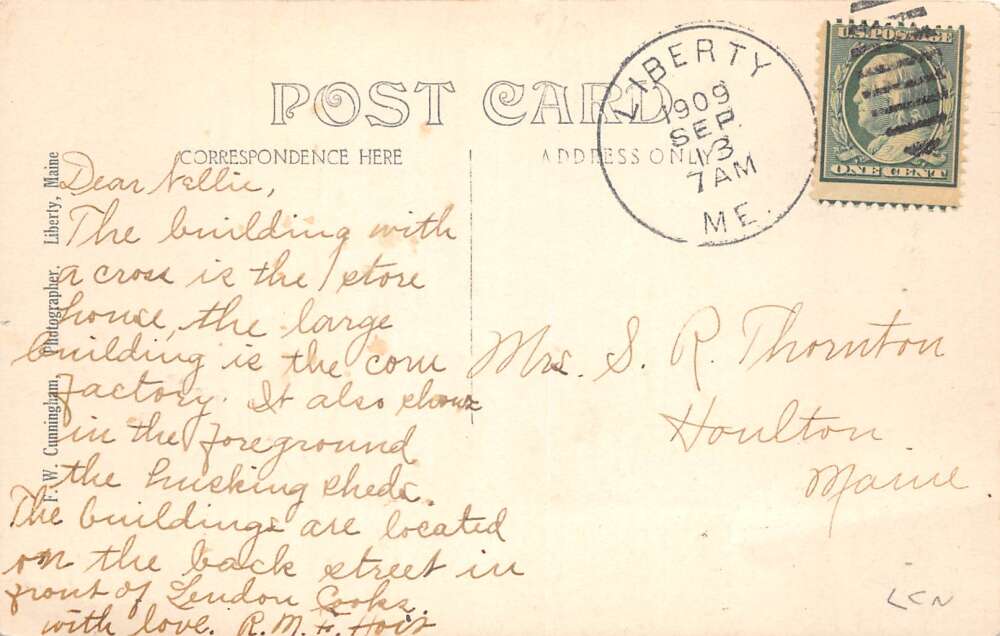 POST CARD
CORRESPONDENCE HERE
ADDRESS ONLY
F. W. Cunningham, Photographer. Liberty, Maine
LIBERTY
1909
SEP
13
7AM
ME.
U.S. POSTAGE
ONE CENT
Dear Nellie,
The building with
a cross is the store
house, the large
building is the corn
factory. It also shows
in the foreground
the husking sheds.
The buildings are located
on the back street in
front of Lendon Cooks.
with love. R. M. F. Hoit
Mrs. S. R. Thornton
Houlton
Maine
LCN